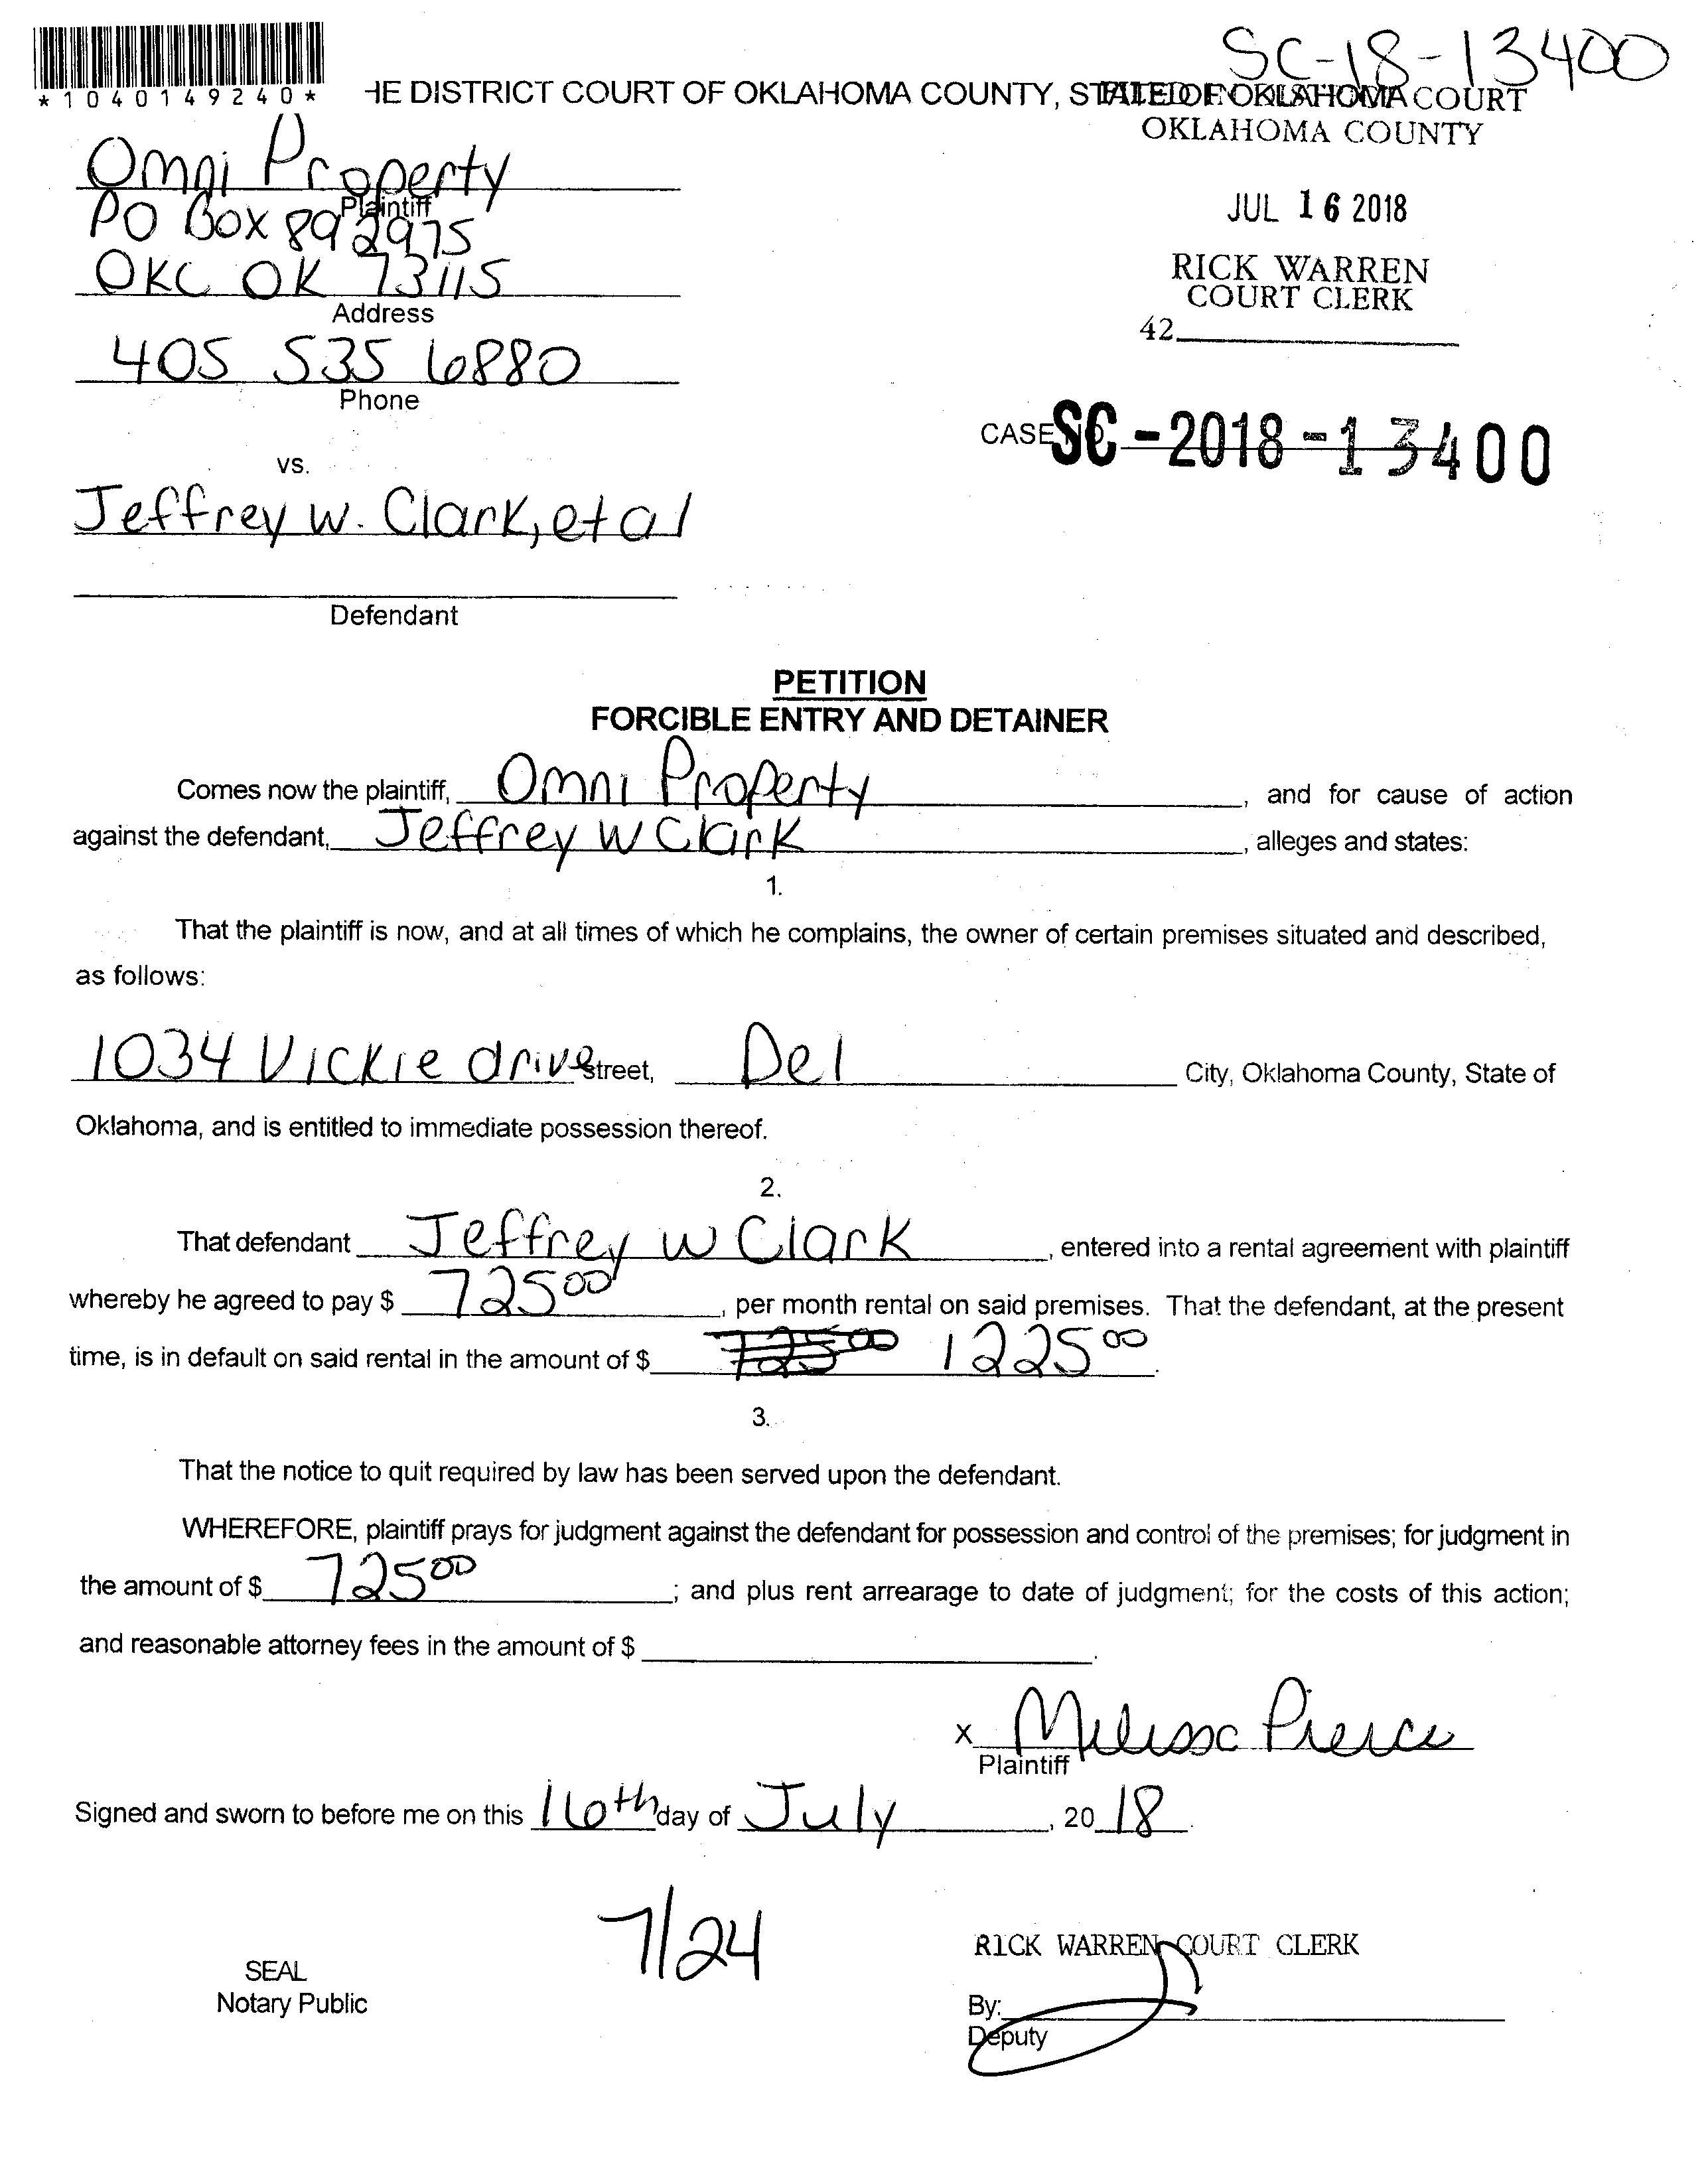 SC-18-13400
*1040149240*
HE DISTRICT COURT OF OKLAHOMA COUNTY, STATE OF OKLAHOMA
FILED IN DISTRICT COURT
OKLAHOMA COUNTY
JUL 16 2018
RICK WARREN
COURT CLERK
42
Omni Property
Plaintiff
PO Box 892975
OKC OK 73115
Address
405 535 6880
Phone
CASE NO. SC-2018-13400
vs.
Jeffrey W. Clark, et al
Defendant
PETITION
FORCIBLE ENTRY AND DETAINER
Comes now the plaintiff, Omni Property, and for cause of action
against the defendant, Jeffrey W Clark, alleges and states:
1.
That the plaintiff is now, and at all times of which he complains, the owner of certain premises situated and described,
as follows:
1034 Vickie drive street, Del City, Oklahoma County, State of
Oklahoma, and is entitled to immediate possession thereof.
2.
That defendant Jeffrey W Clark, entered into a rental agreement with plaintiff
whereby he agreed to pay $ 725 00, per month rental on said premises. That the defendant, at the present
time, is in default on said rental in the amount of $ 725 00 1225 00.
3.
That the notice to quit required by law has been served upon the defendant.
WHEREFORE, plaintiff prays for judgment against the defendant for possession and control of the premises; for judgment in
the amount of $ 725 00; and plus rent arrearage to date of judgment; for the costs of this action;
and reasonable attorney fees in the amount of $ .
X Melissa Pierce
Plaintiff
Signed and sworn to before me on this 16th day of July, 20 18.
7/24
SEAL
Notary Public
RICK WARREN COURT CLERK
By:
Deputy